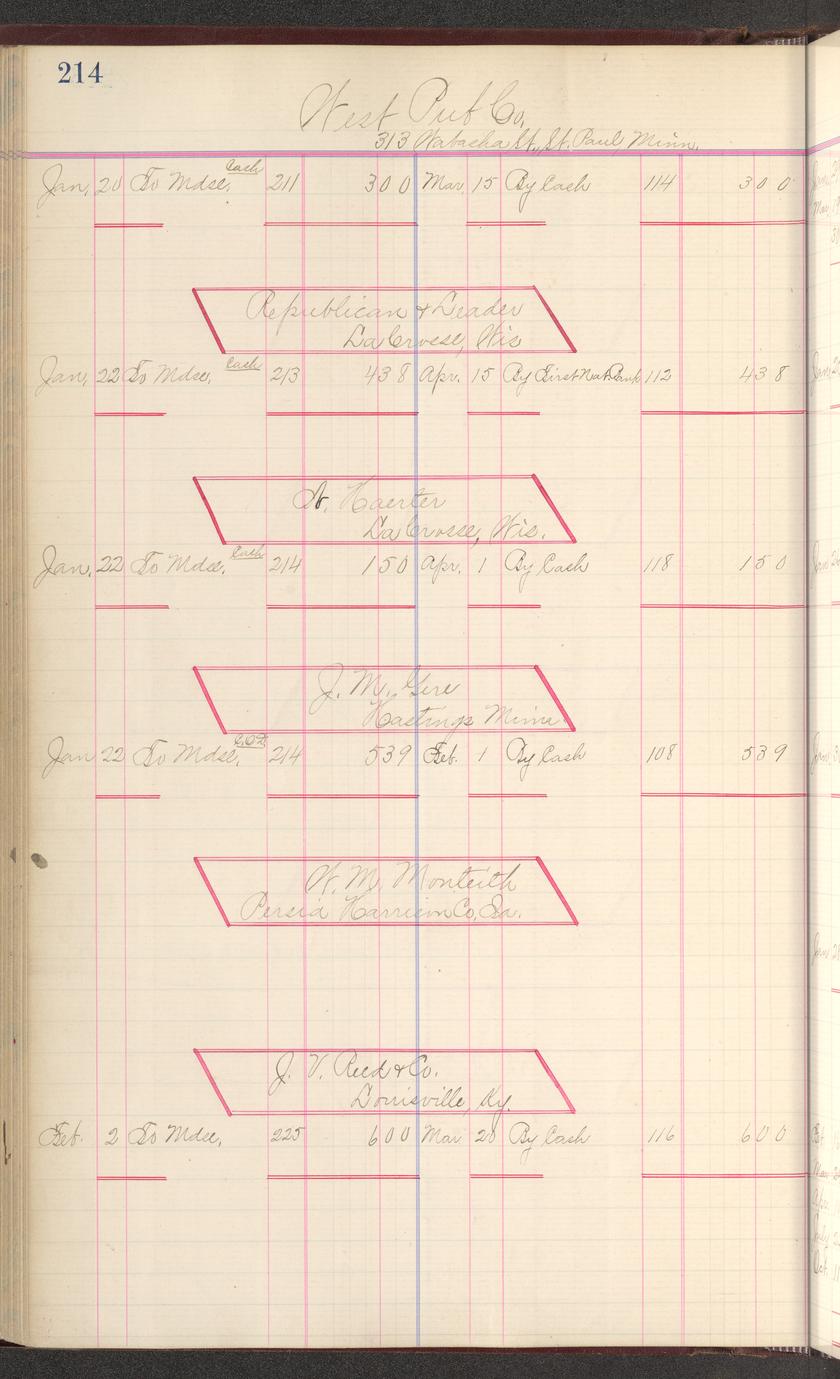 214
West Pub Co.
313 Wabasha St., St. Paul, Minn.
Jan. 20 To Mdse. Cash 211 300 Mar. 15 By Cash 114 300
Republican & Leader
LaCrosse, Wis
Jan. 22 To Mdse. Cash 213 438 Apr. 15 By First Nat Bank 112 438
Haerter
LaCrosse, Wis.
Jan. 22 To Mdse. Cash 214 150 Apr. 1 By Cash 118 150
J. M. Gere
Hastings Minn.
Jan 22 To Mdse. C.O.D. 214 539 Feb. 1 By Cash 108 539
W. M. Monteith
Persia Harrison Co, Ia.
J. V. Reed & Co.
Louisville, Ky.
Feb. 2 To Mdse. 225 600 Mar 20 By Cash 116 600